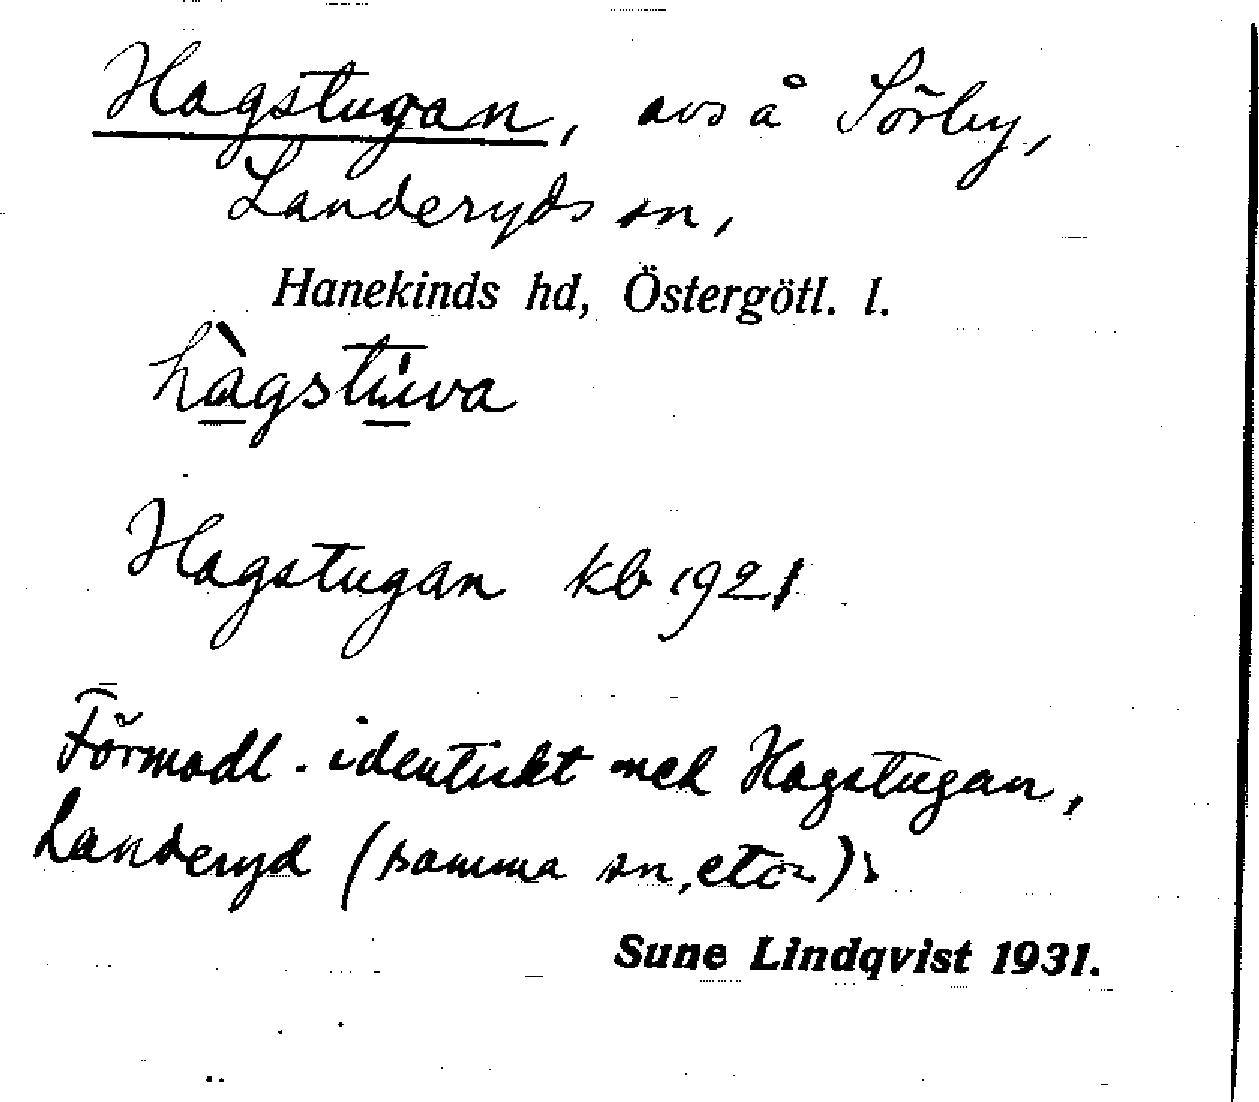 Hagstugan, avs å Sörby,
Landeryds sn,
Hanekinds hd, Östergötl. l.
hàgstúva
Hagstugan kb 1921
Förmodl. identiskt med Hagstugan,
Landeryd (samma sn, etc).
Sune Lindqvist 1931.